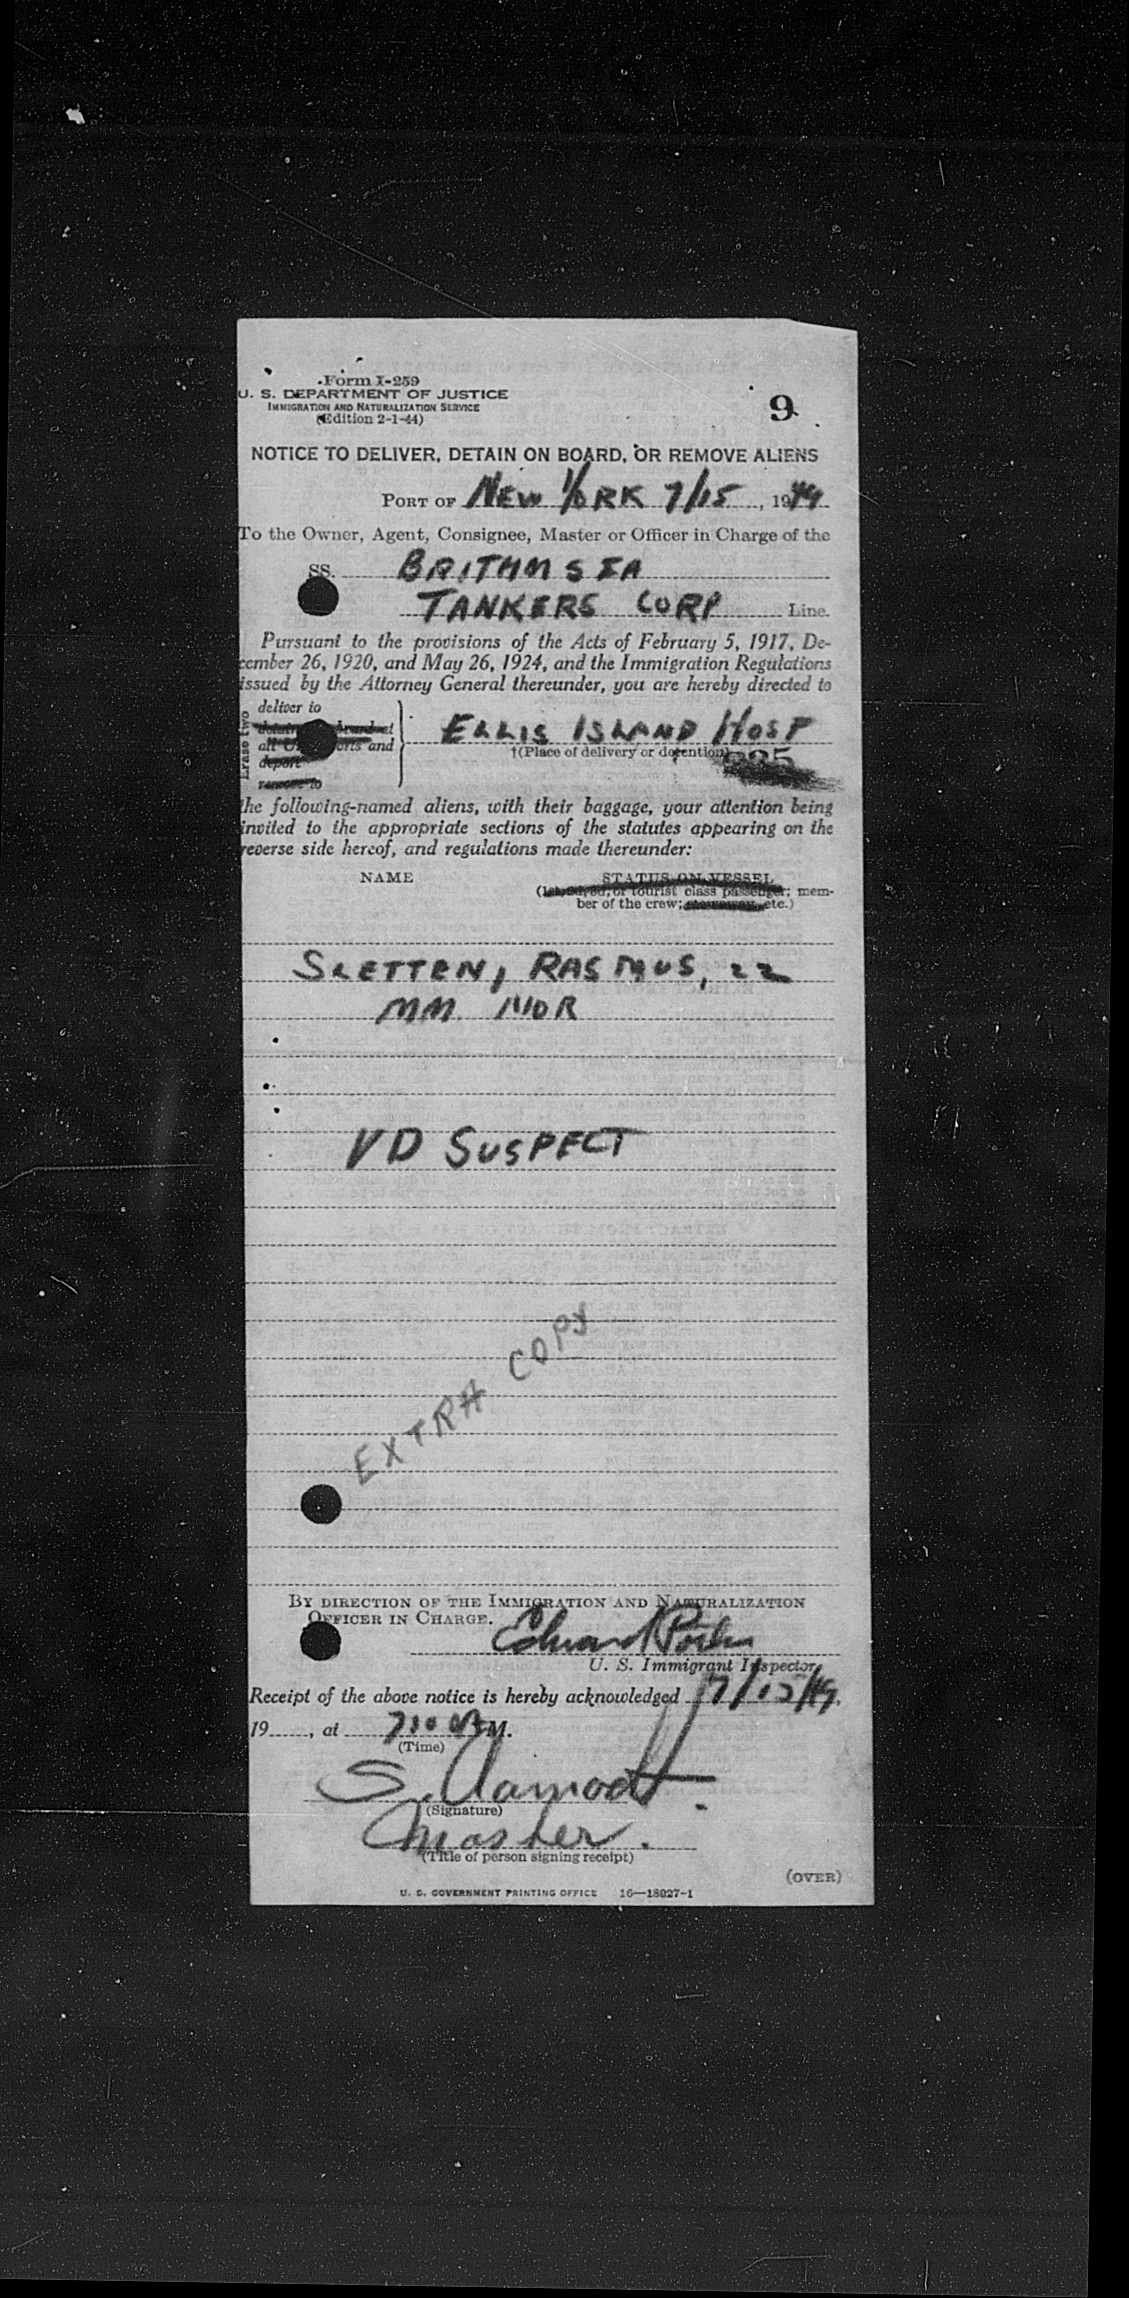 Form I-259
U. S. DEPARTMENT OF JUSTICE
IMMIGRATION AND NATURALIZATION SERVICE
(Edition 2-1-44)
9
NOTICE TO DELIVER, DETAIN ON BOARD, OR REMOVE ALIENS
PORT OF NEW YORK 7/15, 1949
To the Owner, Agent, Consignee, Master or Officer in Charge of the
SS.
TANKERS CORP Line.
Pursuant to the provisions of the Acts of February 5, 1917, De-
cember 26, 1920, and May 26, 1924, and the Immigration Regulations
issued by the Attorney General thereunder, you are hereby directed to
Erase two
deliver to
detain on board at
all U. S. ports and
deport
remove to
ELLIS ISLAND HOSP
†(Place of delivery or detention)
the following-named aliens, with their baggage, your attention being
invited to the appropriate sections of the statutes appearing on the
reverse side hereof, and regulations made thereunder:
NAME STATUS ON VESSEL
(1st, 2d, 3d, or tourist class passenger; mem-
ber of the crew; stowaway, etc.)
SLETTEN, RASMUS, 22
MM NOR
VD SUSPECT
EXTRA COPY
BY DIRECTION OF THE IMMIGRATION AND NATURALIZATION
OFFICER IN CHARGE.
Edward
U. S. Immigrant Inspector.
Receipt of the above notice is hereby acknowledged 7/15/49,
19, at 7:00 M.
(Time)
S. Aamodt.
(Signature)
Master.
(Title of person signing receipt)
(OVER)
U. S. GOVERNMENT PRINTING OFFICE 16—18027-1